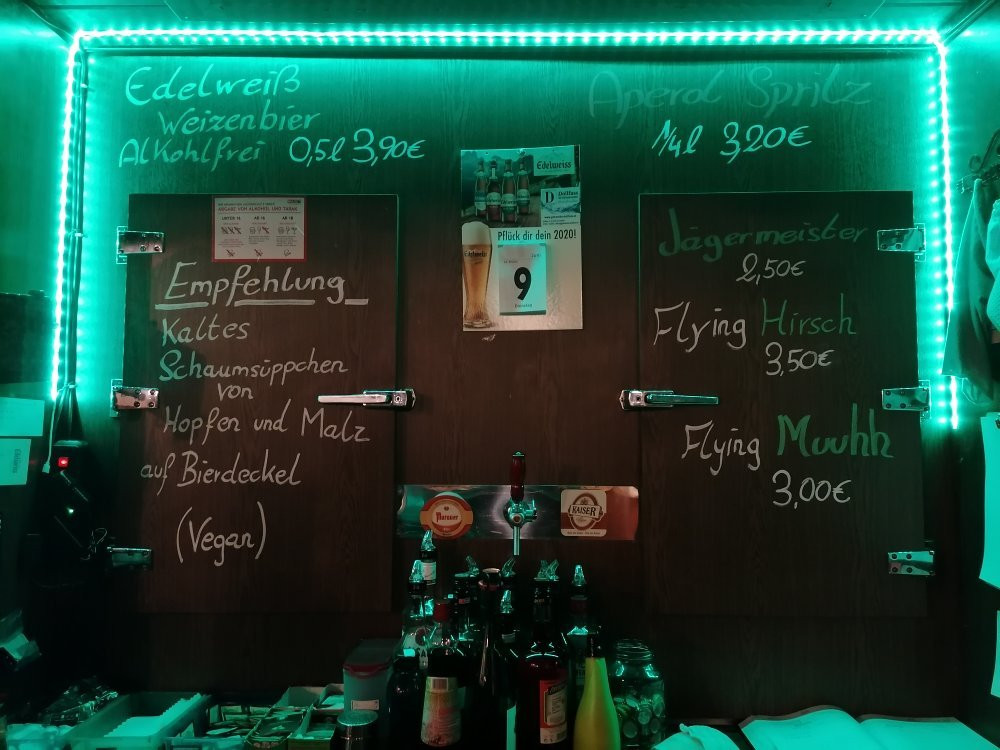 Edelweiß
Weizenbier
Alkohlfrei 0,5l 3,90€
Aperol Spritz
1/4l 3,20€
Empfehlung
Kaltes
Schaumsüppchen
von
Hopfen und Malz
auf Bierdeckel
(Vegan)
ABGABE VON ALKOHOL UND TABAK
UNTER 16 AB 16 AB 18
Edelweiss
Pflück dir dein 2020!
9
Jägermeister
2,50€
Flying Hirsch
3,50€
Flying Muuhh
3,00€
KAISER